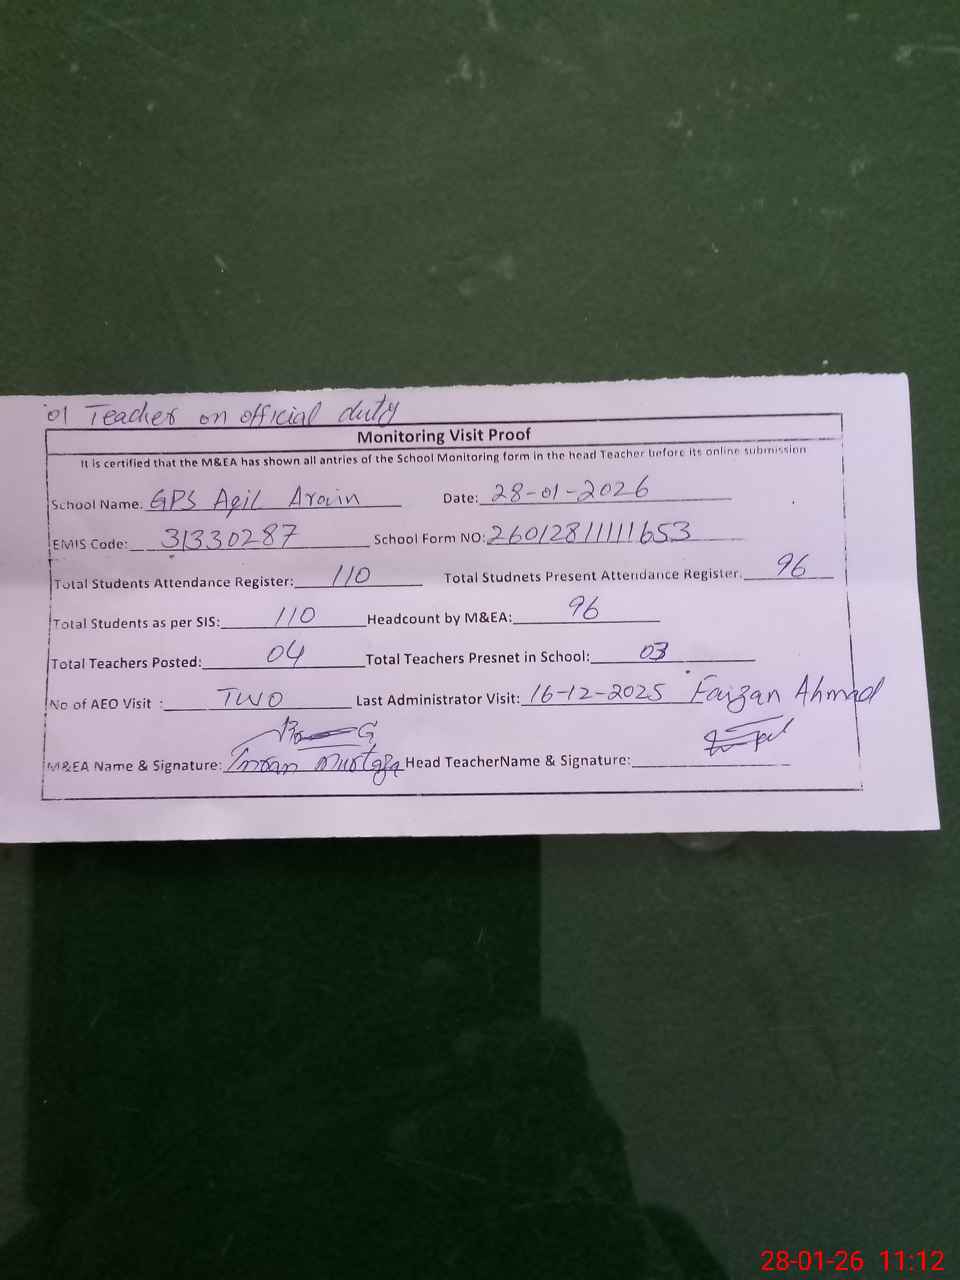 01 Teacher on official duty
Monitoring Visit Proof
It is certified that the M&EA has shown all antries of the School Monitoring form in the head Teacher before its online submission
School Name: GPS Aqil Arain Date: 28-01-2026
EMIS Code: 31330287 School Form NO: 26012811111653
Total Students Attendance Register: 110 Total Studnets Present Attendance Register. 96
Total Students as per SIS: 110 Headcount by M&EA: 96
Total Teachers Posted: 04 Total Teachers Presnet in School: 03
No of AEO Visit : TWO Last Administrator Visit: 16-12-2025 Faizan Ahmad
M&EA Name & Signature: Imran Mustafa Head TeacherName & Signature:
28-01-26 11:12